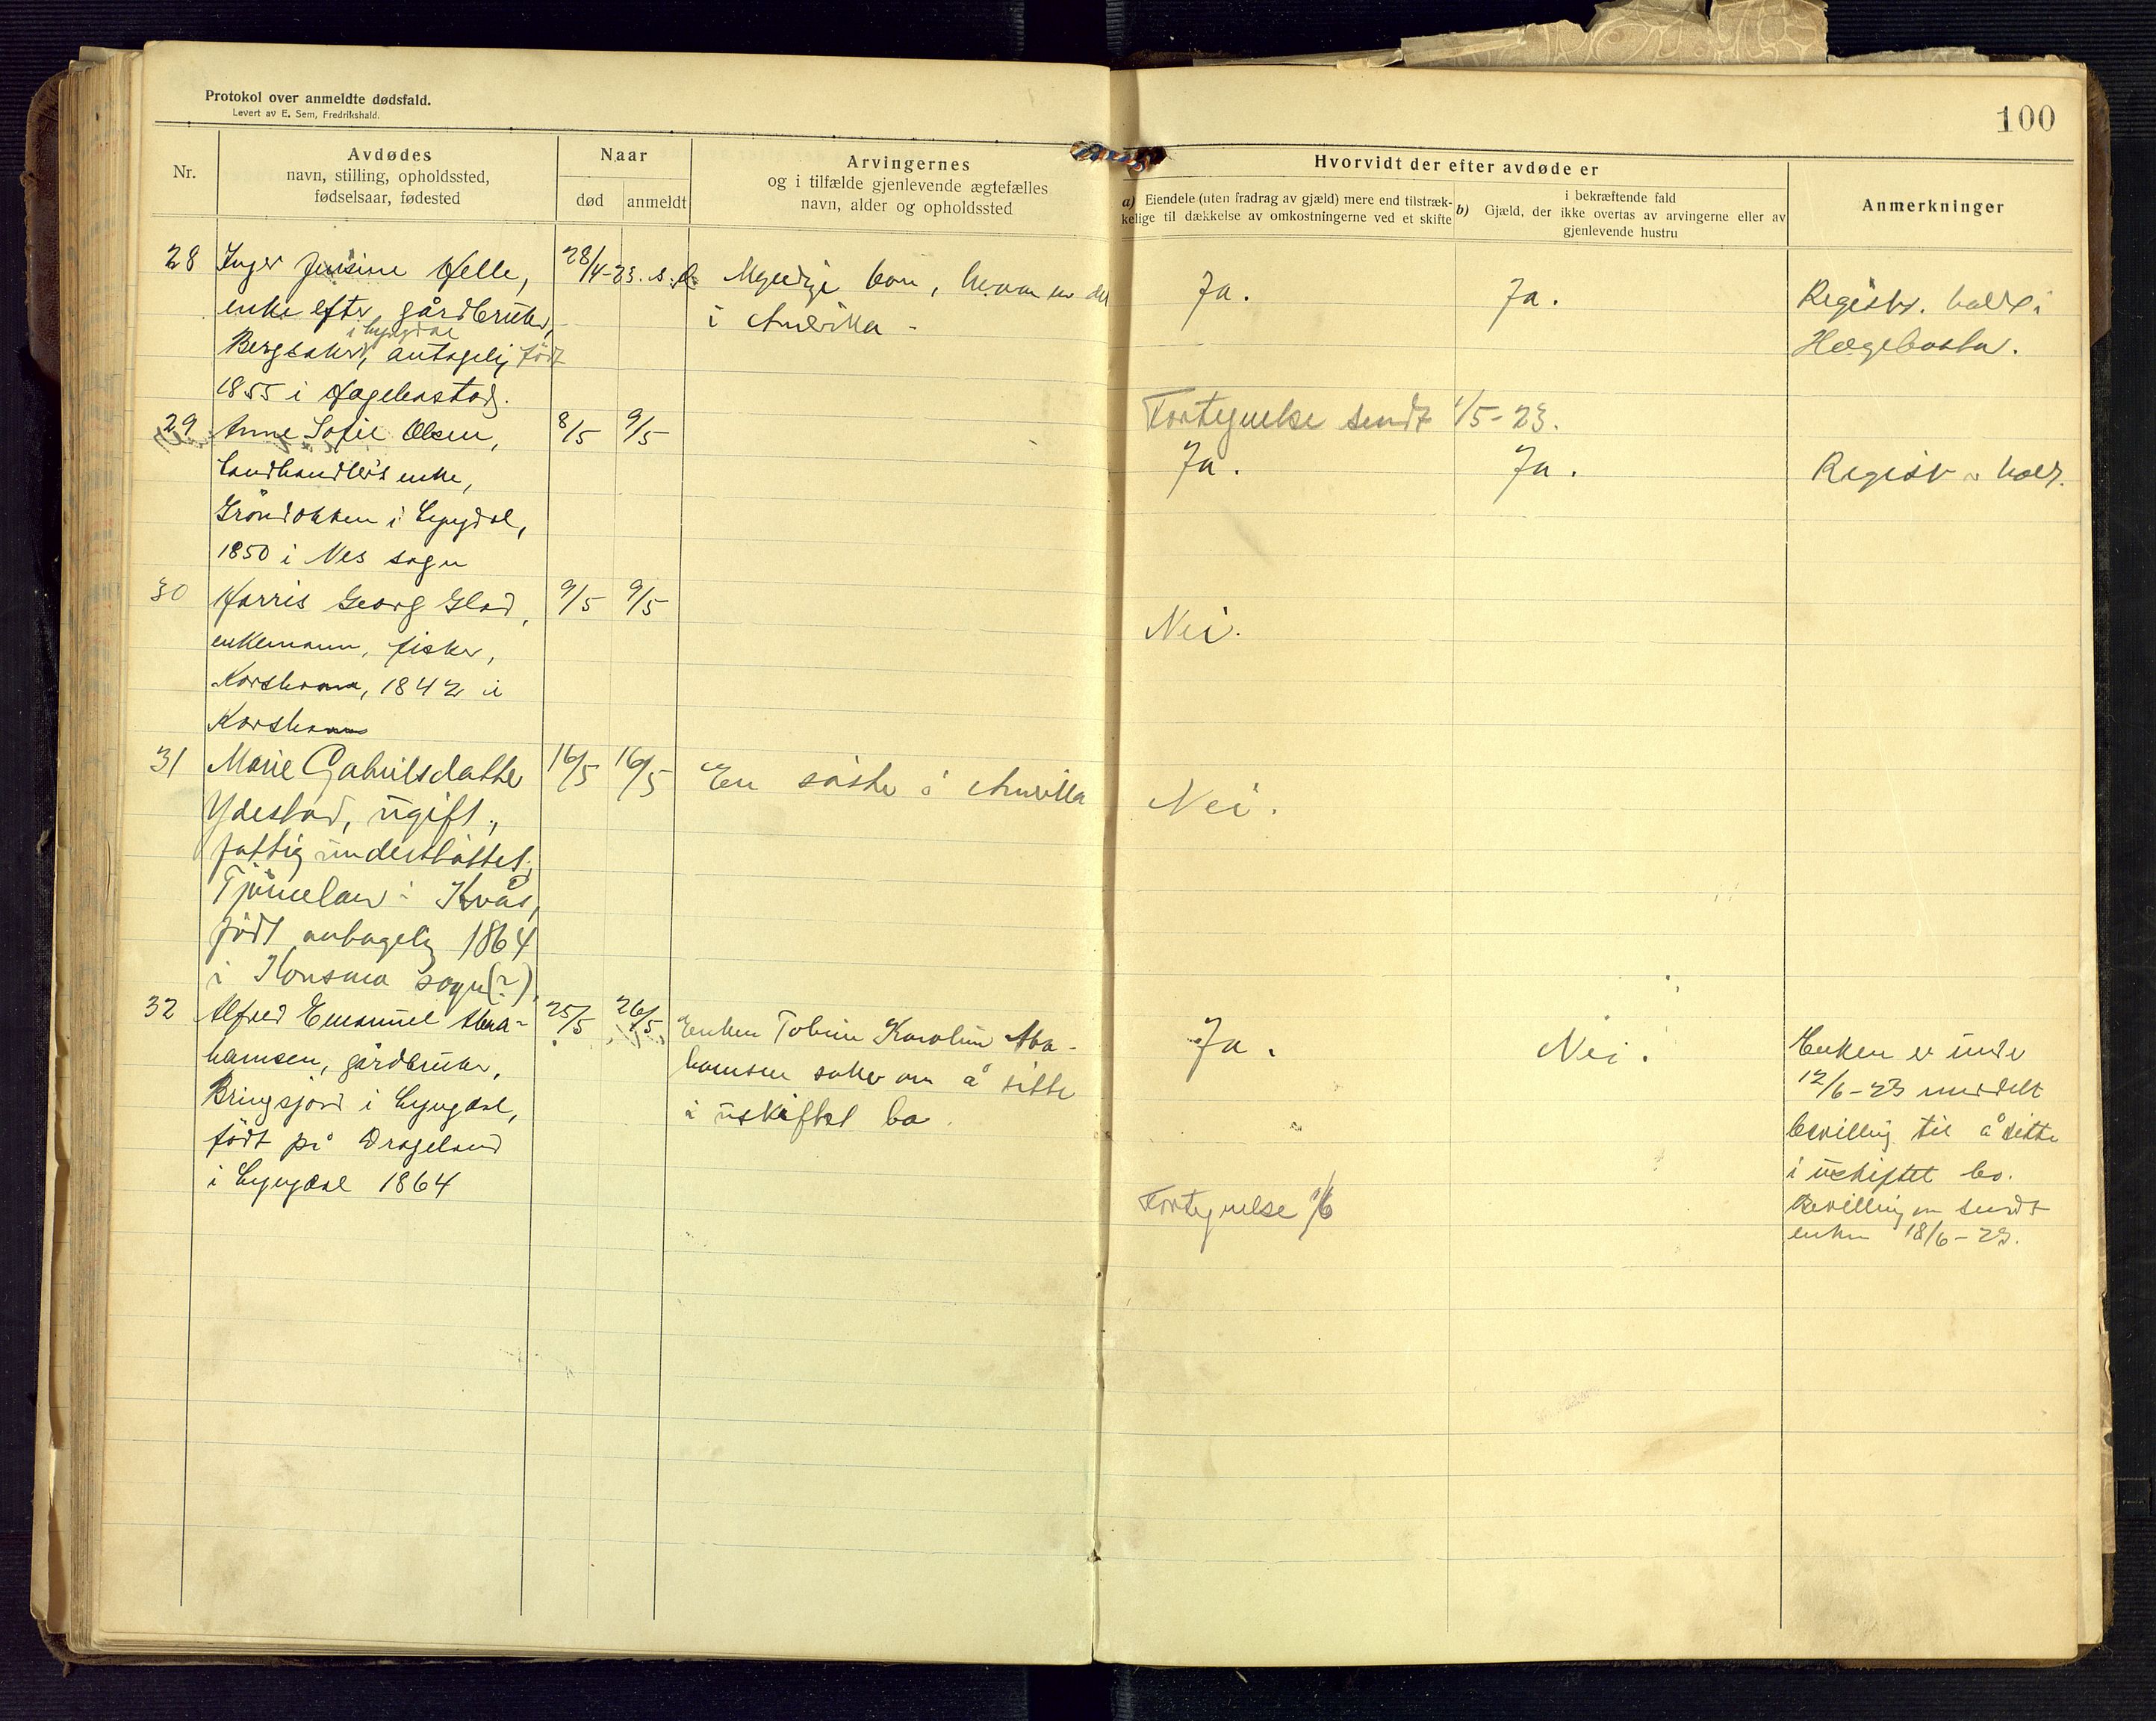 Protokol over anmeldte dødsfald.
Levert av E. Sem, Fredrikshald.
100
Nr.
Avdødes
navn, stilling, opholdssted,
fødselsaar, fødested
Naar
død
anmeldt
Arvingernes
og i tilfælde gjenlevende ægtefælles
navn, alder og opholdssted
Hvorvidt der efter avdøde er
a) Eiendele (uten fradrag av gjæld) mere end tilstræk-
kelige til dækkelse av omkostningerne ved et skifte
b) Gjæld, der
i bekræftende fald
ikke overtas av arvingerne eller av
gjenlevende hustru
Anmerkninger
28 Inger Jensine Helle,
enke efter gårdbruker,
i Lyngdal
Bergsaker, antagelig født
1855 i Hægebostad.
28/4-23. s. d.
Myndige barn, hvorav en del
i Amerika -
Ja.
Ja.
Registr. holdt i
Hægebostad.
Fortegnelse sendt 1/5-23.
29 Anne Sofie Olsen,
landhandlers enke,
Grøndokken i Lyngdal,
1850 i Nes sogn
8/5
9/5
Ja.
Ja.
Registr. holdt.
30 Harris Georg Glad,
enkemann, fisker,
Korshavn, 1842 i
Korshavn
9/5
9/5
Nei.
31 Marie Gabrielsdatter
Ydestad, ugift,
fattigunderstøttet,
i Kvås,
født antagelig 1864
i Konsmo sogn (?)
16/5
16/5
En søster i Amerika
Nei.
32 Alfred Emanuel Abra-
hamsen, gårdbruker,
Bringsjord i Lyngdal,
født på Drageland
i Lyngdal 1864
25/5
26/5
Enken Tobine Karoline Abra-
hamsen søker om å sitte
i uskiftet bo
Ja.
Nei.
Enken er under
12/6-23 meddelt
bevilling til å sitte
i uskiftet bo.
Bevillingen sendt
enken 18/6-23.
Fortegnelse 1/6